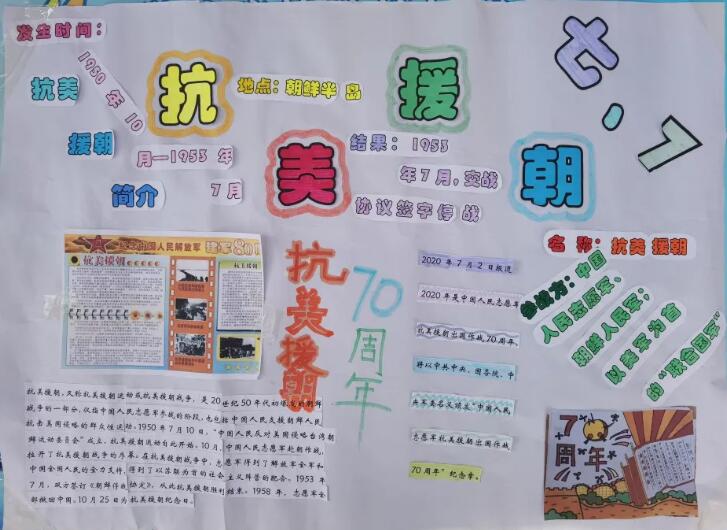 发生时间：
1950年10
月—1953年
7月
抗美
援朝
简介
抗
美
援
朝
地点：朝鲜半岛
结果：1953
年7月，交战
协议签字停战
七、7
名称：抗美援朝
参战方：中国
人民志愿军。
朝鲜人民军；
以美军为首
的“联合国军”
中国人民解放军
抗美援朝
抗美援朝
70周年
2020年7月2日报道
2020年是中国人民志愿军
抗美援朝出国作战70周年
将以中共中央、国务院、中
央军委名义颁发“中国人民
志愿军抗美援朝出国作战
70周年”纪念章。
抗美援朝，又称抗美援朝运动或抗美援朝战争，是20世纪50年代初爆发的朝鲜
战争的一部分，仅指中国人民志愿军参战的阶段，也包括中国人民支援朝鲜人民
抗击美国侵略的群众性运动。1950年7月10日，“中国人民反对美国侵略台湾朝
鲜运动委员会”成立，抗美援朝运动自此开始。10月，中国人民志愿军赴朝作战，
拉开了抗美援朝战争的序幕。在抗美援朝战争中，志愿军得到了解放军全军和
中国全国人民的全力支持，得到了以苏联为首的社会主义阵营的配合。1953年
7月，双方签订《朝鲜停战协定》，从此抗美援朝胜利结束。1958年，志愿军全
部撤回中国。10月25日为抗美援朝纪念日。
70
周年